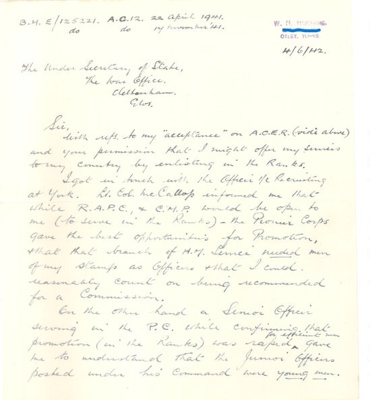 B.M. E/125221. A.G.12. 22 April 1941.
do do 14 November '41.
4/6/42.
The Under Secretary of State,
The War Office,
Cheltenham.
Glos.
Sir,
With ref. to my "acceptance" on A.O.E.R. (vide above)
and your permission that I might offer my services
to my country by enlisting in the Ranks.
I got in touch with the Officer i/c Recruiting
at York. Lt. Col. informed me that
while R.A.P.C. & C.M.P. would be open to
me (- to serve in the Ranks) - the Pioneer Corps
gave the best opportunities for Promotion,
& that that branch of H.M. Service needed men
of my stamp as Officers & that I could
reasonably count on being recommended
for a Commission.
On the other hand a Senior Officer
serving in the P.C. while confirming that
promotion (in the Ranks) was rapid for efficient men gave
me to understand that the Junior Officers
posted under his command were young men.